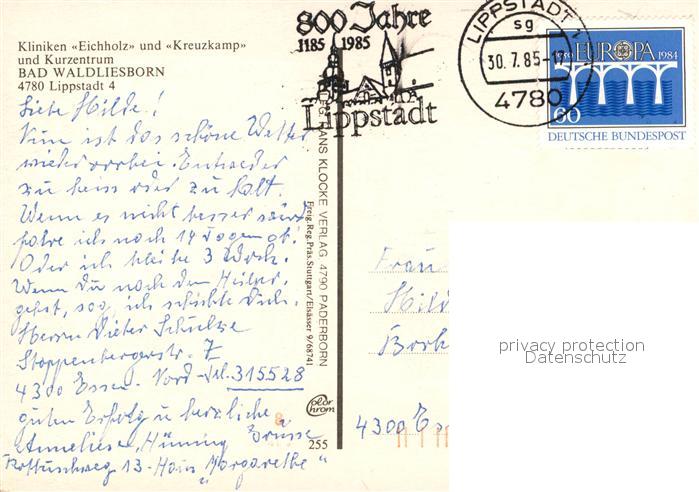 Kliniken «Eichholz» und «Kreuzkamp»
und Kurzentrum
BAD WALDLIESBORN
4780 Lippstadt 4
Liebe Hilde!
Nun ist das schöne Wetter
wieder vorbei. Entweder
zu heiss oder zu kalt.
Wenn es nicht besser wird
fahre ich nach 14 Tagen ab.
Oder ich bleibe 3 Woch.
Wenn Du nach dem
gehst, sag, ich schickte Dich.
Herrn Dieter Schulze
Stoppenbergerstr. 7
4300 Essen-Nord-Tel. 315528
guten Erfolg u herzliche
Grüsse
Anneliese Hüning
13-Haus "Margarethe"
800 Jahre
1185 1985
Lippstadt
LIPPSTADT 1
sg
30.7.85-17
4780
1959 EUROPA 1984
60
DEUTSCHE BUNDESPOST
HANS KLOCKE VERLAG 4790 PADERBORN
Freig. Reg. Präs. Stuttgart/Elsässer 9/68741
Color
Chrom
255
Frau
Hild
4300 Es
privacy protection
Datenschutz